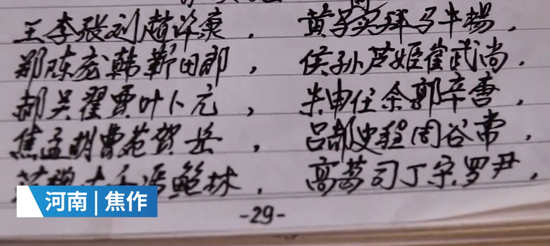 王李张刘赵许康，黄宋樊拜马牛杨，
郑陈庞韩靳田郎，侯孙芦姬崔武尚，
郝吴翟贾叶卜元，朱申任余郭辛唐，
焦孟胡曹范贺岳，吕都史程周谷常，
冯鲍林，高葛司丁宋罗尹，
河南|焦作
-29-